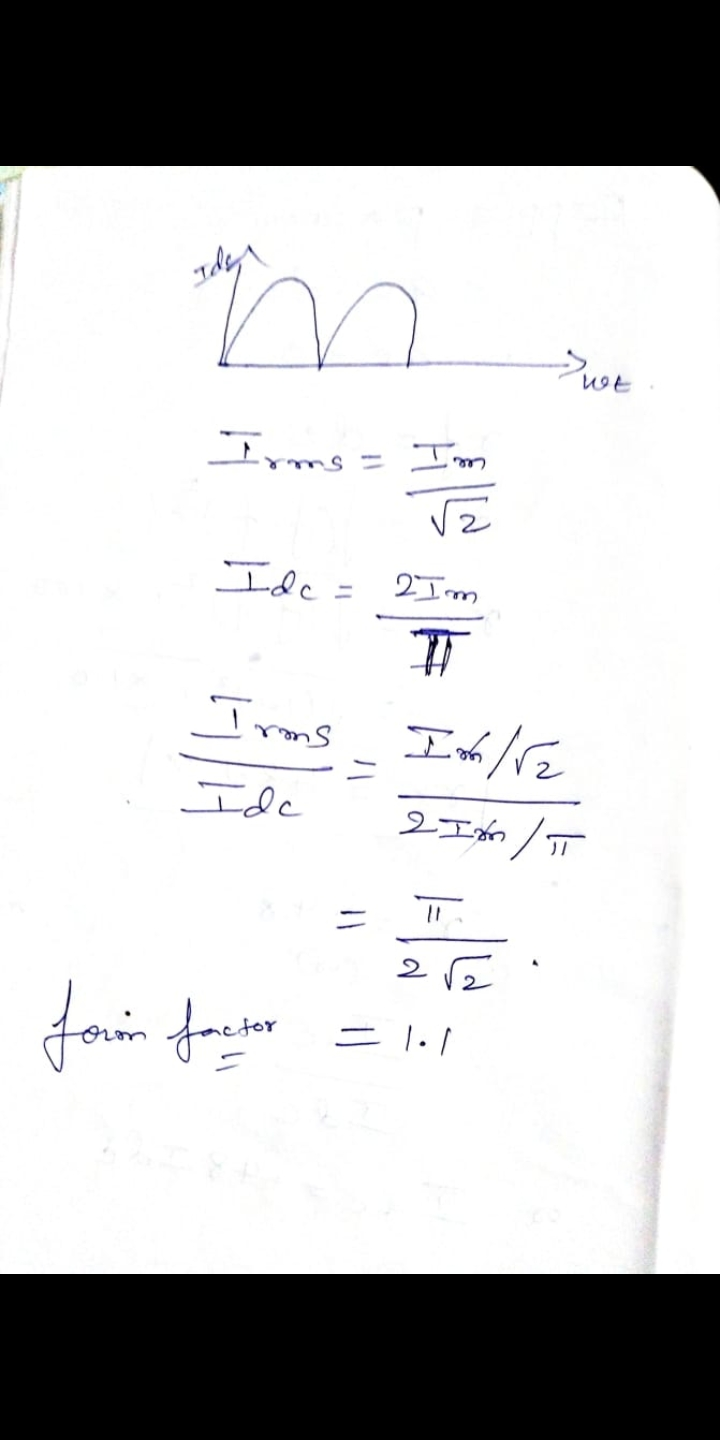 Idc
wt
Irms = Im/√2
Idc = 2Im/π
Irms/Idc = (Im/√2)/(2Im/π)
= π/(2√2) .
form factor = 1.1